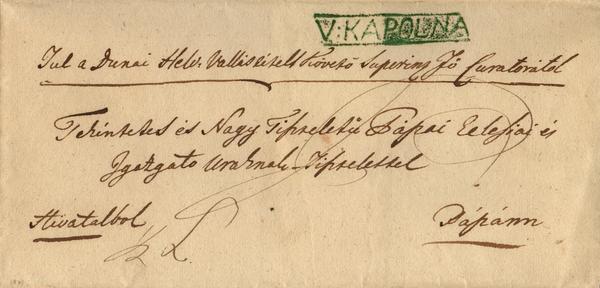 V:KAPOLNA
Tul a Dunai Helv. Vallástételt Követő Superint. Fő Curatorától
Tekintetes és Nagy Tiszteletű Pápai Eclesiai és
Igazgato Uraknak Tisztelettel
Hivatalbol
Pápánn